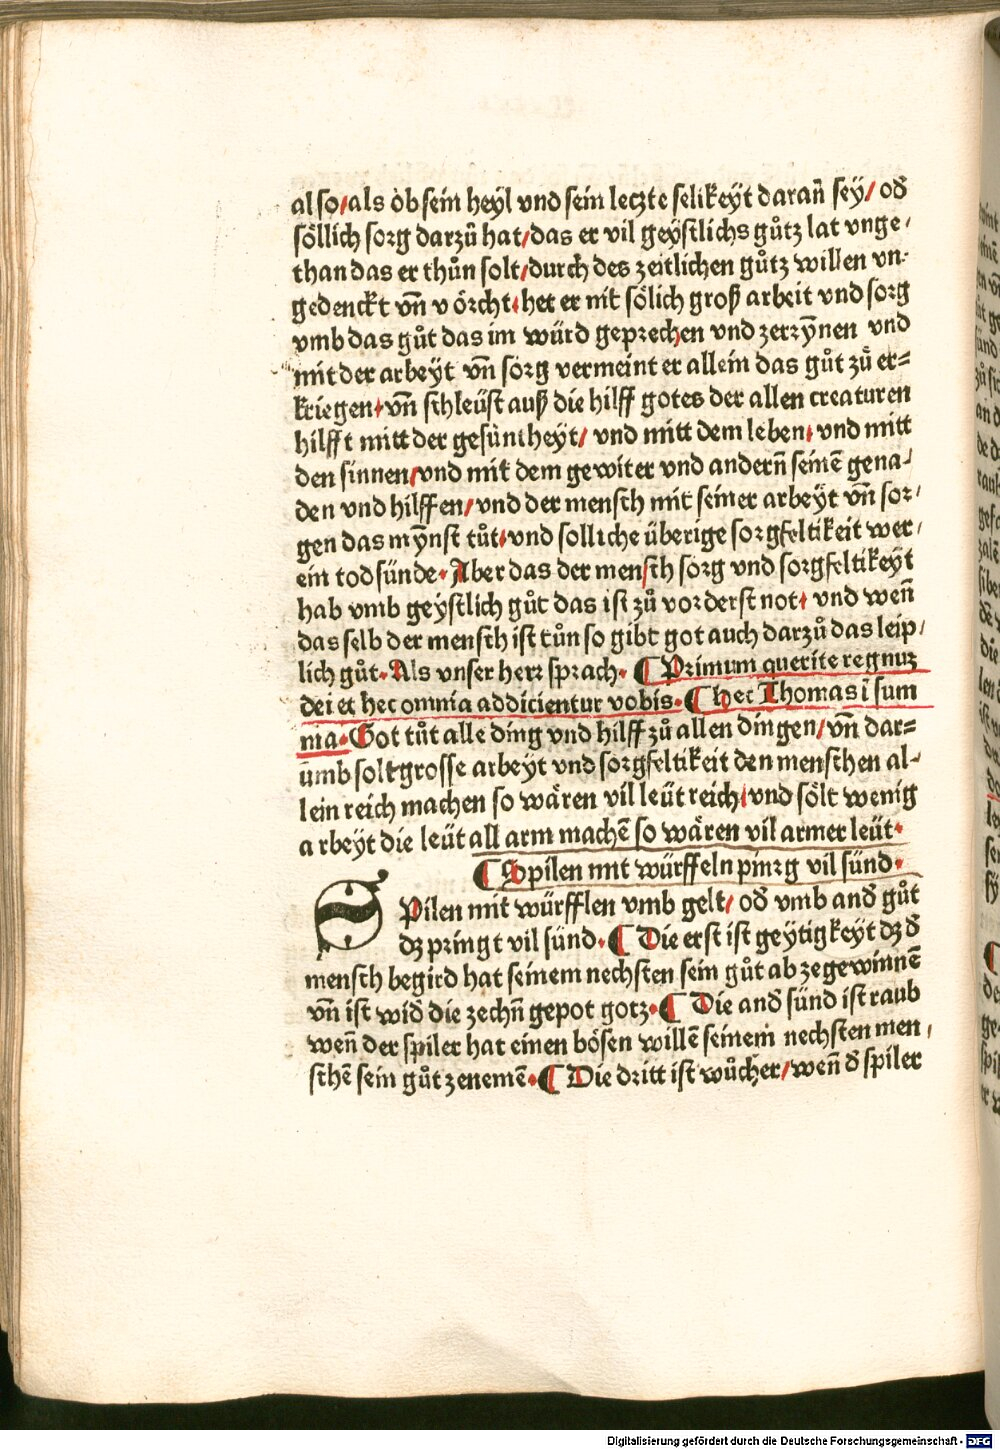 also/als ob sein heyl vnd sein leczte selikeyt darañ seÿ/ od̄
söllich sorg darzů hat/das er vil geÿstlichs gůtz lat vnge⸗
than das er thůn solt/durch des zeitlichen gůtz willen vn⸗
gedenckt vñ vörcht·het er nit sölich groß arbeit vnd sorg
vmb das gůt das im würd geprechen vnd zerrÿnen vnd
mit der arbeÿt vñ sorg vermeint er allein das gůt zů er⸗
kriegen·vñ schleüst auß die hilff gotes der allen creaturen
hilfft mitt der gesüntheÿt/ vnd mitt dem leben·vnd mitt
den sinnen/vnd mit dem gewiter vnd anderñ seinē gena⸗
den vnd hilffen/vnd der mensch mit seiner arbeÿt vñ sor⸗
gen das mÿnst tůt·vnd solliche überige sorgfeltikeit wer⸗
ein todsünde·Aber das der mensch sorg vnd sorgfeltikeÿt
hab vmb geÿstlich gůt das ist zů vorderst not· vnd weñ
das selb der mensch ist tůn so gibt got auch darzů das leip⸗
lich gůt·Als vnser herr sprach· ¶ Primum querite regnuz
dei et hec omnia addicientur vobis·¶ hec Thomas ī sum
ma·Got tůt alle ding vnd hilff zů allen dingen/vñ dar⸗
ūmb solt grosse arbeÿt vnd sorgfeltikeit den menschen al⸗
lein reich machen so wären vil leüt reich/vnd sölt wenig
arbeÿt die leüt all arm machē so wären vil armer leüt·
¶ Spilen mit würffeln pinrg vil sünd·
SPilen mit würfflen vmb gelt/ od̄ vmb and̄ gůt
dz pringt vil sünd·¶ Die erst ist geÿtigkeÿt dz d̄
mensch begird hat seinem nechsten sein gůt abzegewinnē
vñ ist wid̄ die zechñ gepot gotz·¶ Die and̄ sünd ist raub
weñ der spiler hat einen bösen willē seinem nechsten men⸗
schē sein gůt zenemē·¶ Die dritt ist wůcher/weñ d̄ spiler
Digitalisierung gefördert durch die Deutsche Forschungsgemeinschaft - DFG